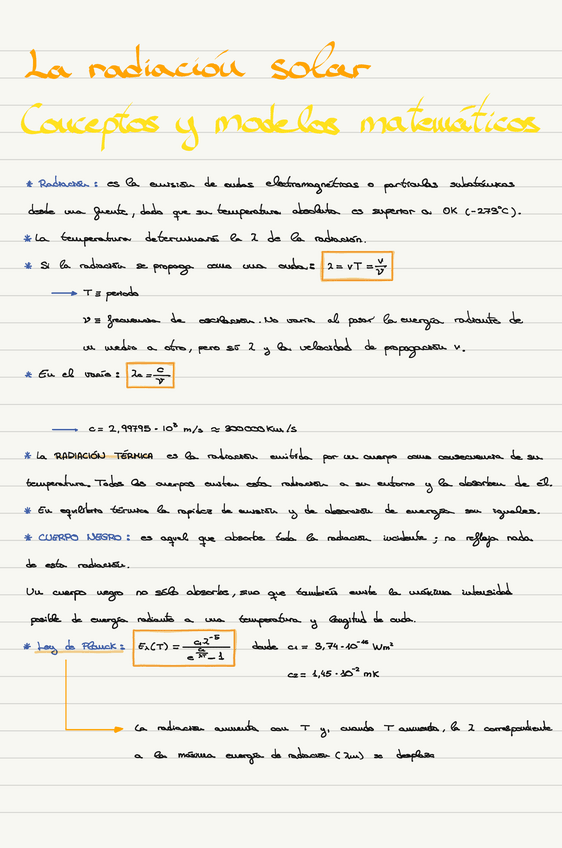 La radiación solar
Conceptos y modelos matemáticos
* Radiación: es la emisión de ondas electromagnéticas o partículas subatómicas
desde una fuente, dado que su temperatura absoluta es superior a 0K (-273°C).
* La temperatura determinará la λ de la radiación.
* Si la radiación se propaga como una onda: λ = vT = v/ν
→ T ≡ periodo
ν ≡ frecuencia de oscilación. No varía al pasar la energía radiante de
un medio a otro, pero sí λ y la velocidad de propagación v.
* En el vacío: λ₀ = c/ν
→ c = 2,99795 · 10⁸ m/s ≈ 300000 Km/s
* La RADIACIÓN TÉRMICA es la radiación emitida por un cuerpo como consecuencia de su
temperatura. Todos los cuerpos emiten esta radiación a su entorno y la absorben de él.
* En equilibrio térmico la rapidez de emisión y de absorción de energía son iguales.
* CUERPO NEGRO: es aquel que absorbe toda la radiación incidente; no refleja nada
de esta radiación.
Un cuerpo negro no sólo absorbe, sino que también emite la máxima intensidad
posible de energía radiante a una temperatura y longitud de onda.
* Ley de Planck: Eλ(T) = c₁λ⁻⁵ / (e^(c₂/λT) - 1) donde c₁ = 3,74·10⁻¹⁶ Wm²
c₂ = 1,45·10⁻² mK
La radiación aumenta con T y, cuando T aumenta, la λ correspondiente
a la máxima energía de radiación (λm) se desplaza